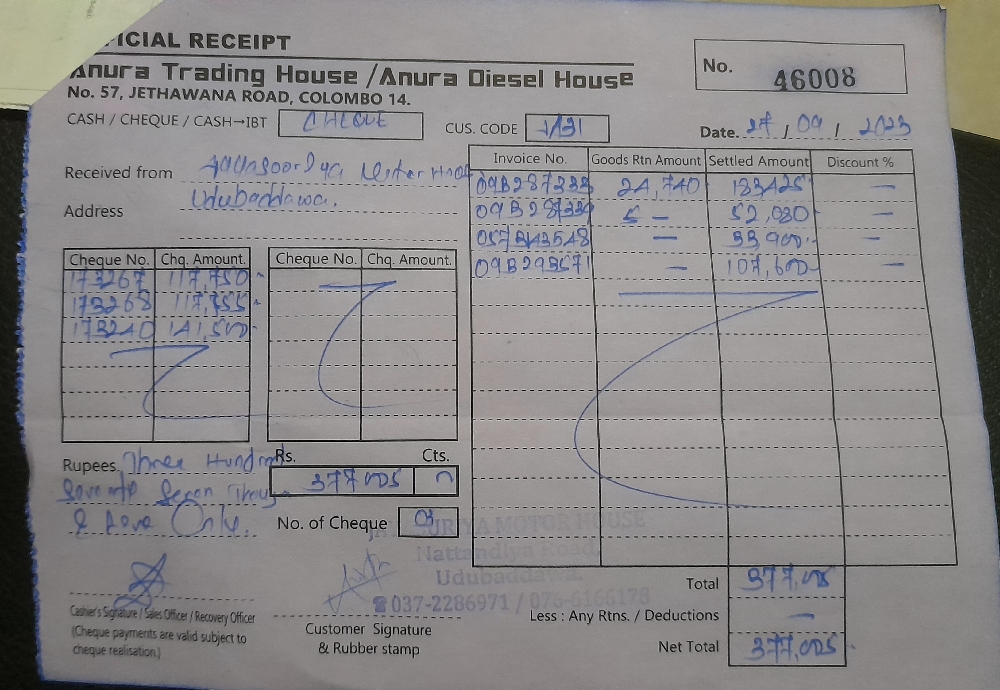 ICIAL RECEIPT
Anura Trading House / Anura Diesel House
No. 57, JETHAWANA ROAD, COLOMBO 14.
No. 46008
CASH / CHEQUE / CASH→IBT CHEQUE
CUS. CODE
Date. 27 / 09 / 2023
Received from
Address Udubaddawa.
Invoice No. Goods Rtn Amount Settled Amount Discount %
09B287333 24,740 183425 —
— 52,080 —
— 33,900 —
09B293571 — 107,600 —
Cheque No. Chq. Amount. Cheque No. Chq. Amount.
173267 117,750
173268 117,755
173240 141,500
Rupees Three Hundred
Only.
Rs. Cts.
377 005
No. of Cheque 03
JAYASURIYA MOTOR HOUSE
Nattandiya Road,
Udubaddawa.
☎037-2286971 / 076-6166178
Cashier's Signature / Sales Officer / Recovery Officer
(Cheque payments are valid subject to
cheque realisation.)
Customer Signature
& Rubber stamp
Total 377,005
Less : Any Rtns. / Deductions —
Net Total 377,005